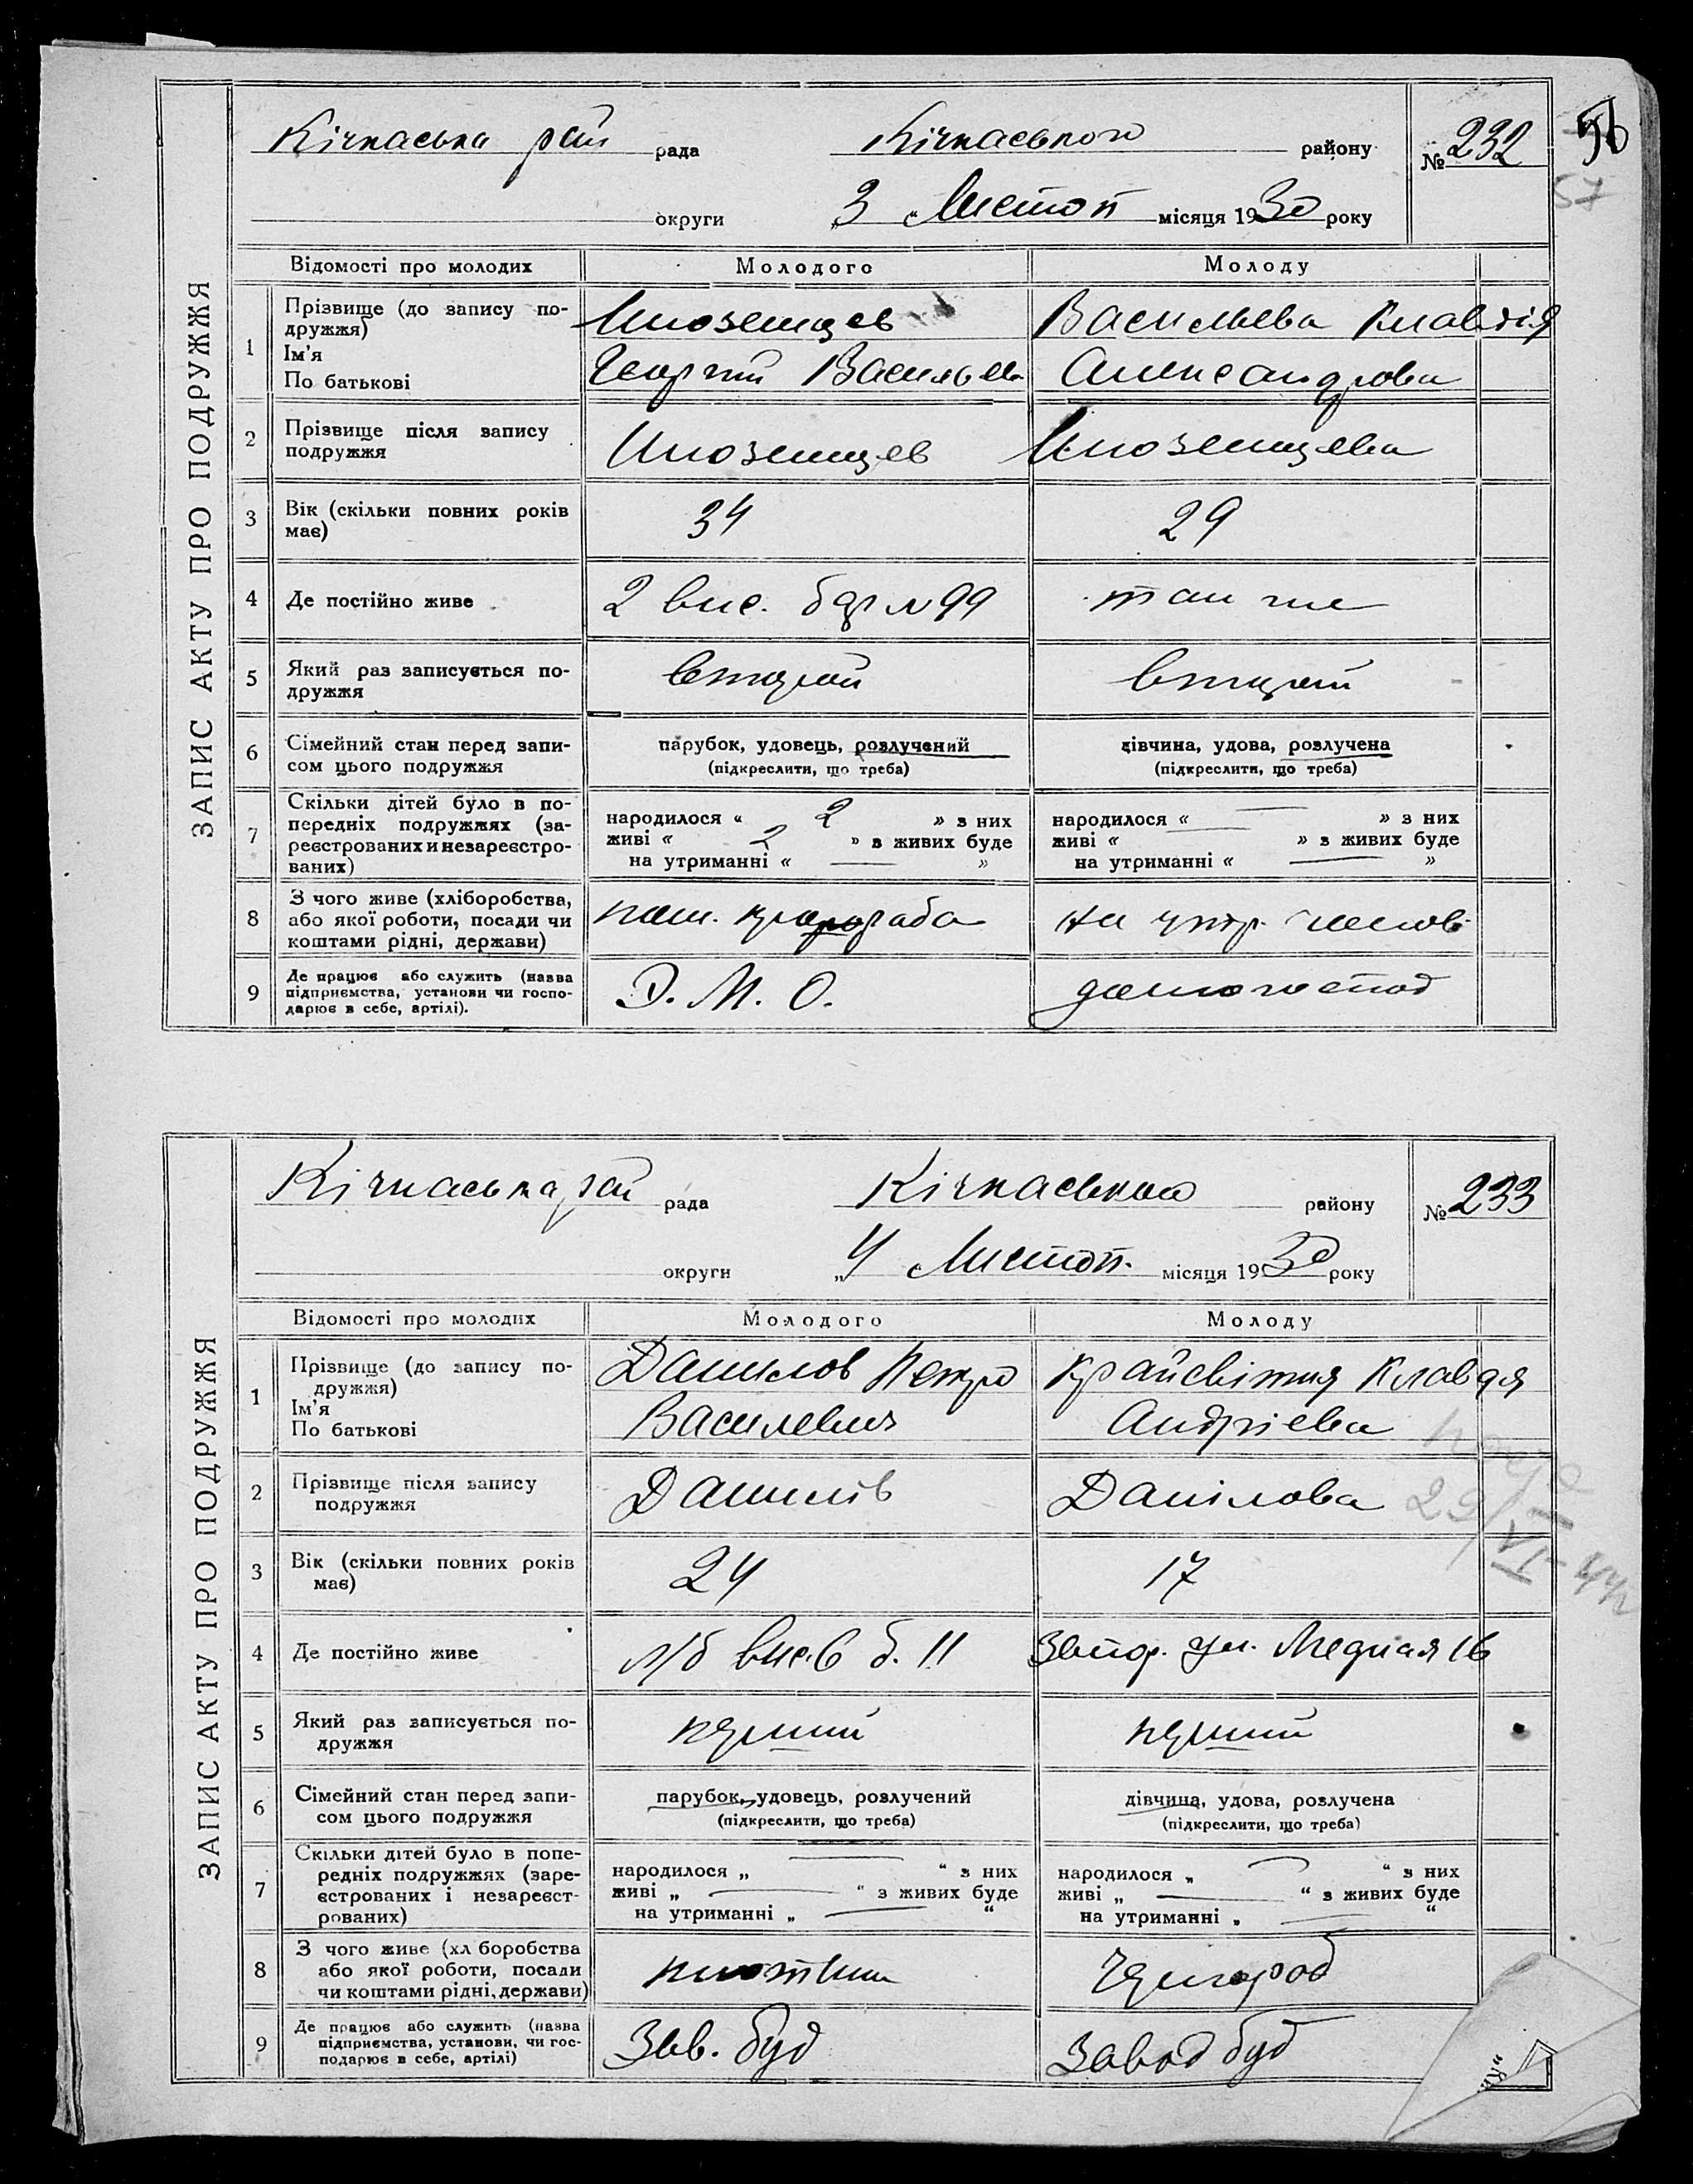 56
57
ЗАПИС АКТУ ПРО ПОДРУЖЖЯ
Кічкаська рай рада Кічкаського району № 232
округи „3 „ Листоп місяця 1930 року
Відомості про молодих Молодого Молоду
1 Прізвище (до запису по-
дружжя)
Ім'я
По батькові
Иноземцев
Георгий Васильев
Васильева Клавдія
Александрова
2 Прізвище після запису
подружжя
Иноземцев Иноземцева
3 Вік (скільки повних років
має)
34 29
4 Де постійно живе 2 вис. б ар № 99 там же
5 Який раз записується по-
дружжя
второй второй
6 Сімейний стан перед запи-
сом цього подружжя
парубок, удовець, розлучений
(підкреслити, що треба)
дівчина, удова, розлучена
(підкреслити, що треба)
7 Скільки дітей було в по-
передніх подружжях (за-
реєстрованих и незареєстро-
ваних)
народилося « 2 » з них
живі « 2 » з живих буде
на утриманні « — »
народилося « — » з них
живі « — » з живих буде
на утриманні « — »
8 З чого живе (хліборобства,
або якої роботи, посади чи
коштами рідні, держави)
пом. прораба
на утр.
9 Де працює або служить (назва
підприємства, установи чи госпо-
дарює в себе, артілі).
Д. М. О.
домогоспод
ЗАПИС АКТУ ПРО ПОДРУЖЖЯ
Кічкаська рай рада Кічкаського району № 233
округи „4 Листоп. місяця 1930 року
Відомості про молодих Молодого Молоду
1 Прізвище (до запису по-
дружжя)
Ім'я
По батькові
Данилов Петро
Василевич
Крайсвітня Клавдя
Андріева
2 Прізвище після запису
подружжя
Данилів Данілова
29/VI-44
3 Вік (скільки повних років
має)
24 17
4 Де постійно живе л/б вис. 6 б. 11 Запор. ул. Медная 16
5 Який раз записується по-
дружжя
перший перший
6 Сімейний стан перед запи-
сом цього подружжя
парубок, удовець, розлучений
(підкреслити, що треба)
дівчина, удова, розлучена
(підкреслити, що треба)
7 Скільки дітей було в попе-
редніх подружжях (заре-
єстрованих і незареєст-
рованих)
народилося „ — “ з них
живі „ — “ з живих буде
на утриманні „ — “
народилося „ — “ з них
живі „ — “ з живих буде
на утриманні „ — “
8 З чого живе (хл боробства
або якої роботи, посади
чи коштами рідні, держави)
плотник
Чорнороб
9 Де працює або служить (назва
підприємства, установи, чи гос-
подарює в себе, артілі)
Зав. буд
Завод буд